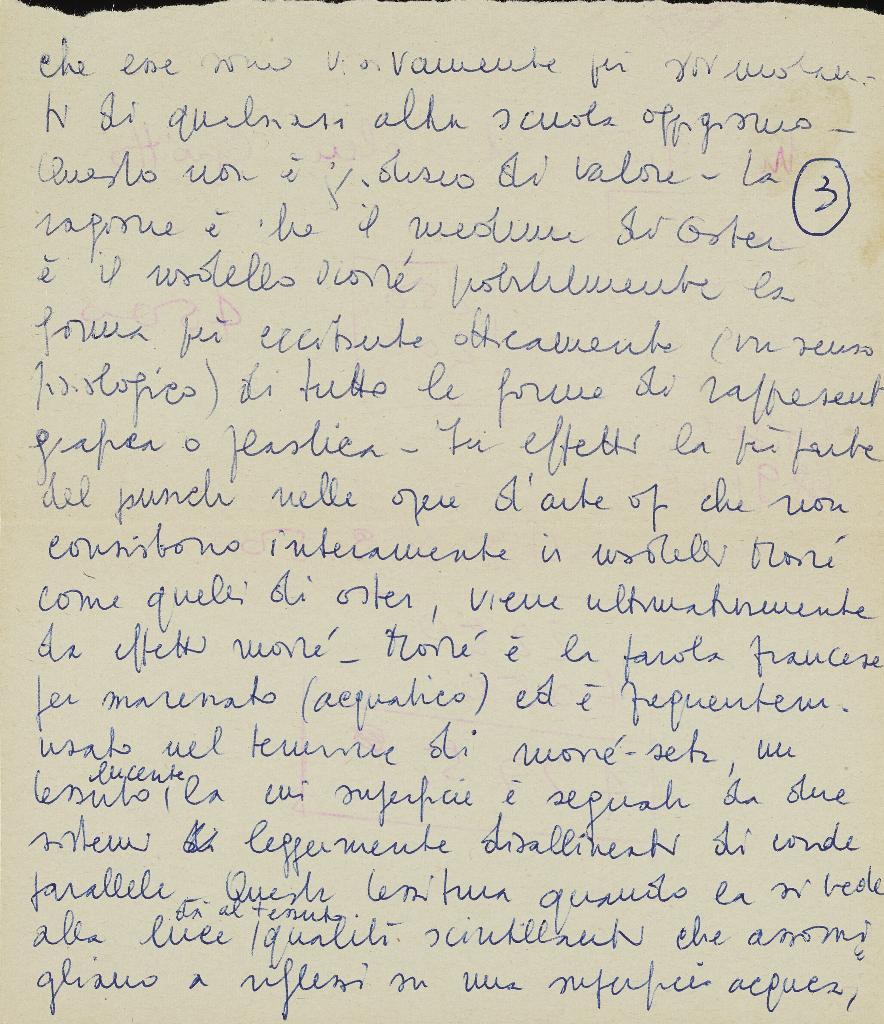 che esse sono visivamente più stimolan-
ti di qualsiasi altra scuola oggigiorno -
Questo non è di valore - La
3
ragione è che il medium di Oster
è il modello moiré probabilmente la
forma più eccitante otticamente (in senso
fisiologico) di tutte le forme di rappresent
grafica o plastica - In effetti la più parte
del punch nelle opere d'arte op che non
consistono interamente in modelli moiré
come quelli di oster, viene ultimativamente
da effetti moiré - Moiré è la parola francese
per marezzato (acquatico) ed è frequentem.
usato nel termine di moiré-seta, un
tessuto lucente, la cui superficie è segnata da due
sistemi leggermente disallineati di corde
parallele. Questa tessitura quando la si vede
alla luce dà al tessuto qualità scintillanti che assomi
gliano a riflessi su una superficie acquea,